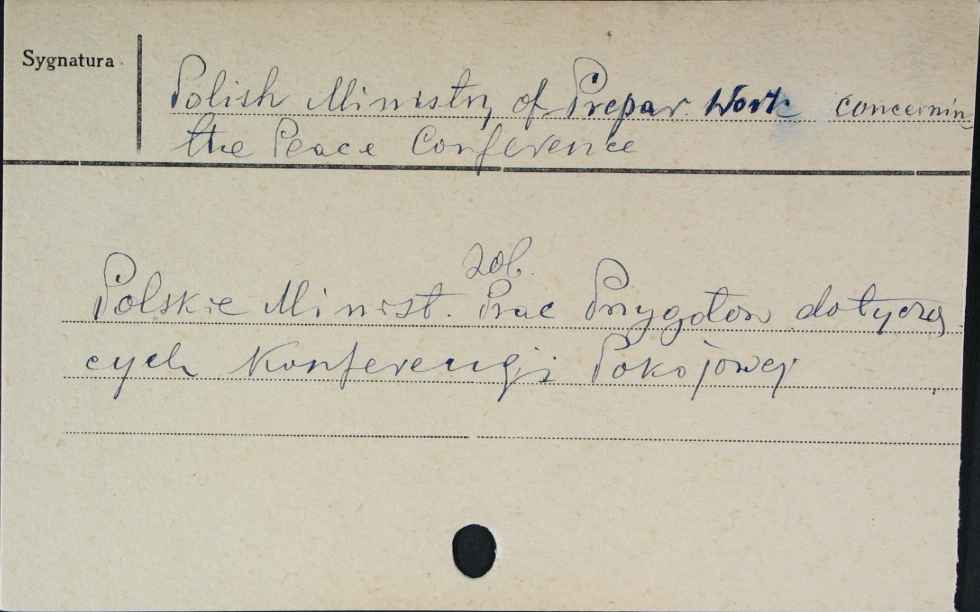 Sygnatura
Polish Ministry of Prepar. Work concernin
the Peace Conference
zob.
Polskie Minist. Prac Przygotow dotyczą
cych Konferencji Pokojowej